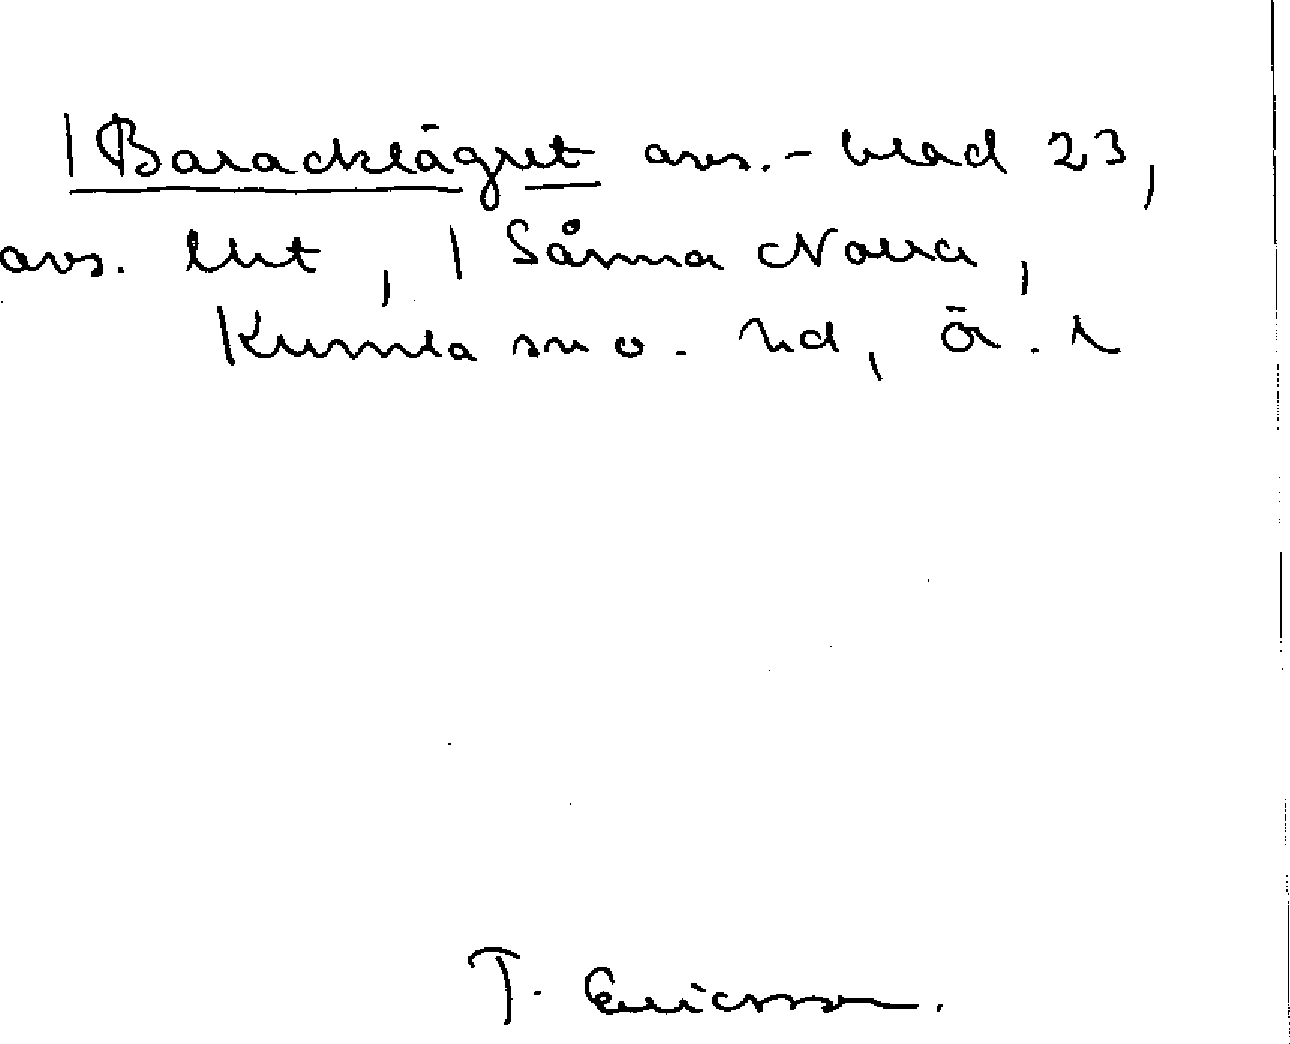 |Baracklägret avs. - blad 23,
avs. litt, | Sånna Norra,
Kumla sn o. hd, Ör. l
T. Ericsson.